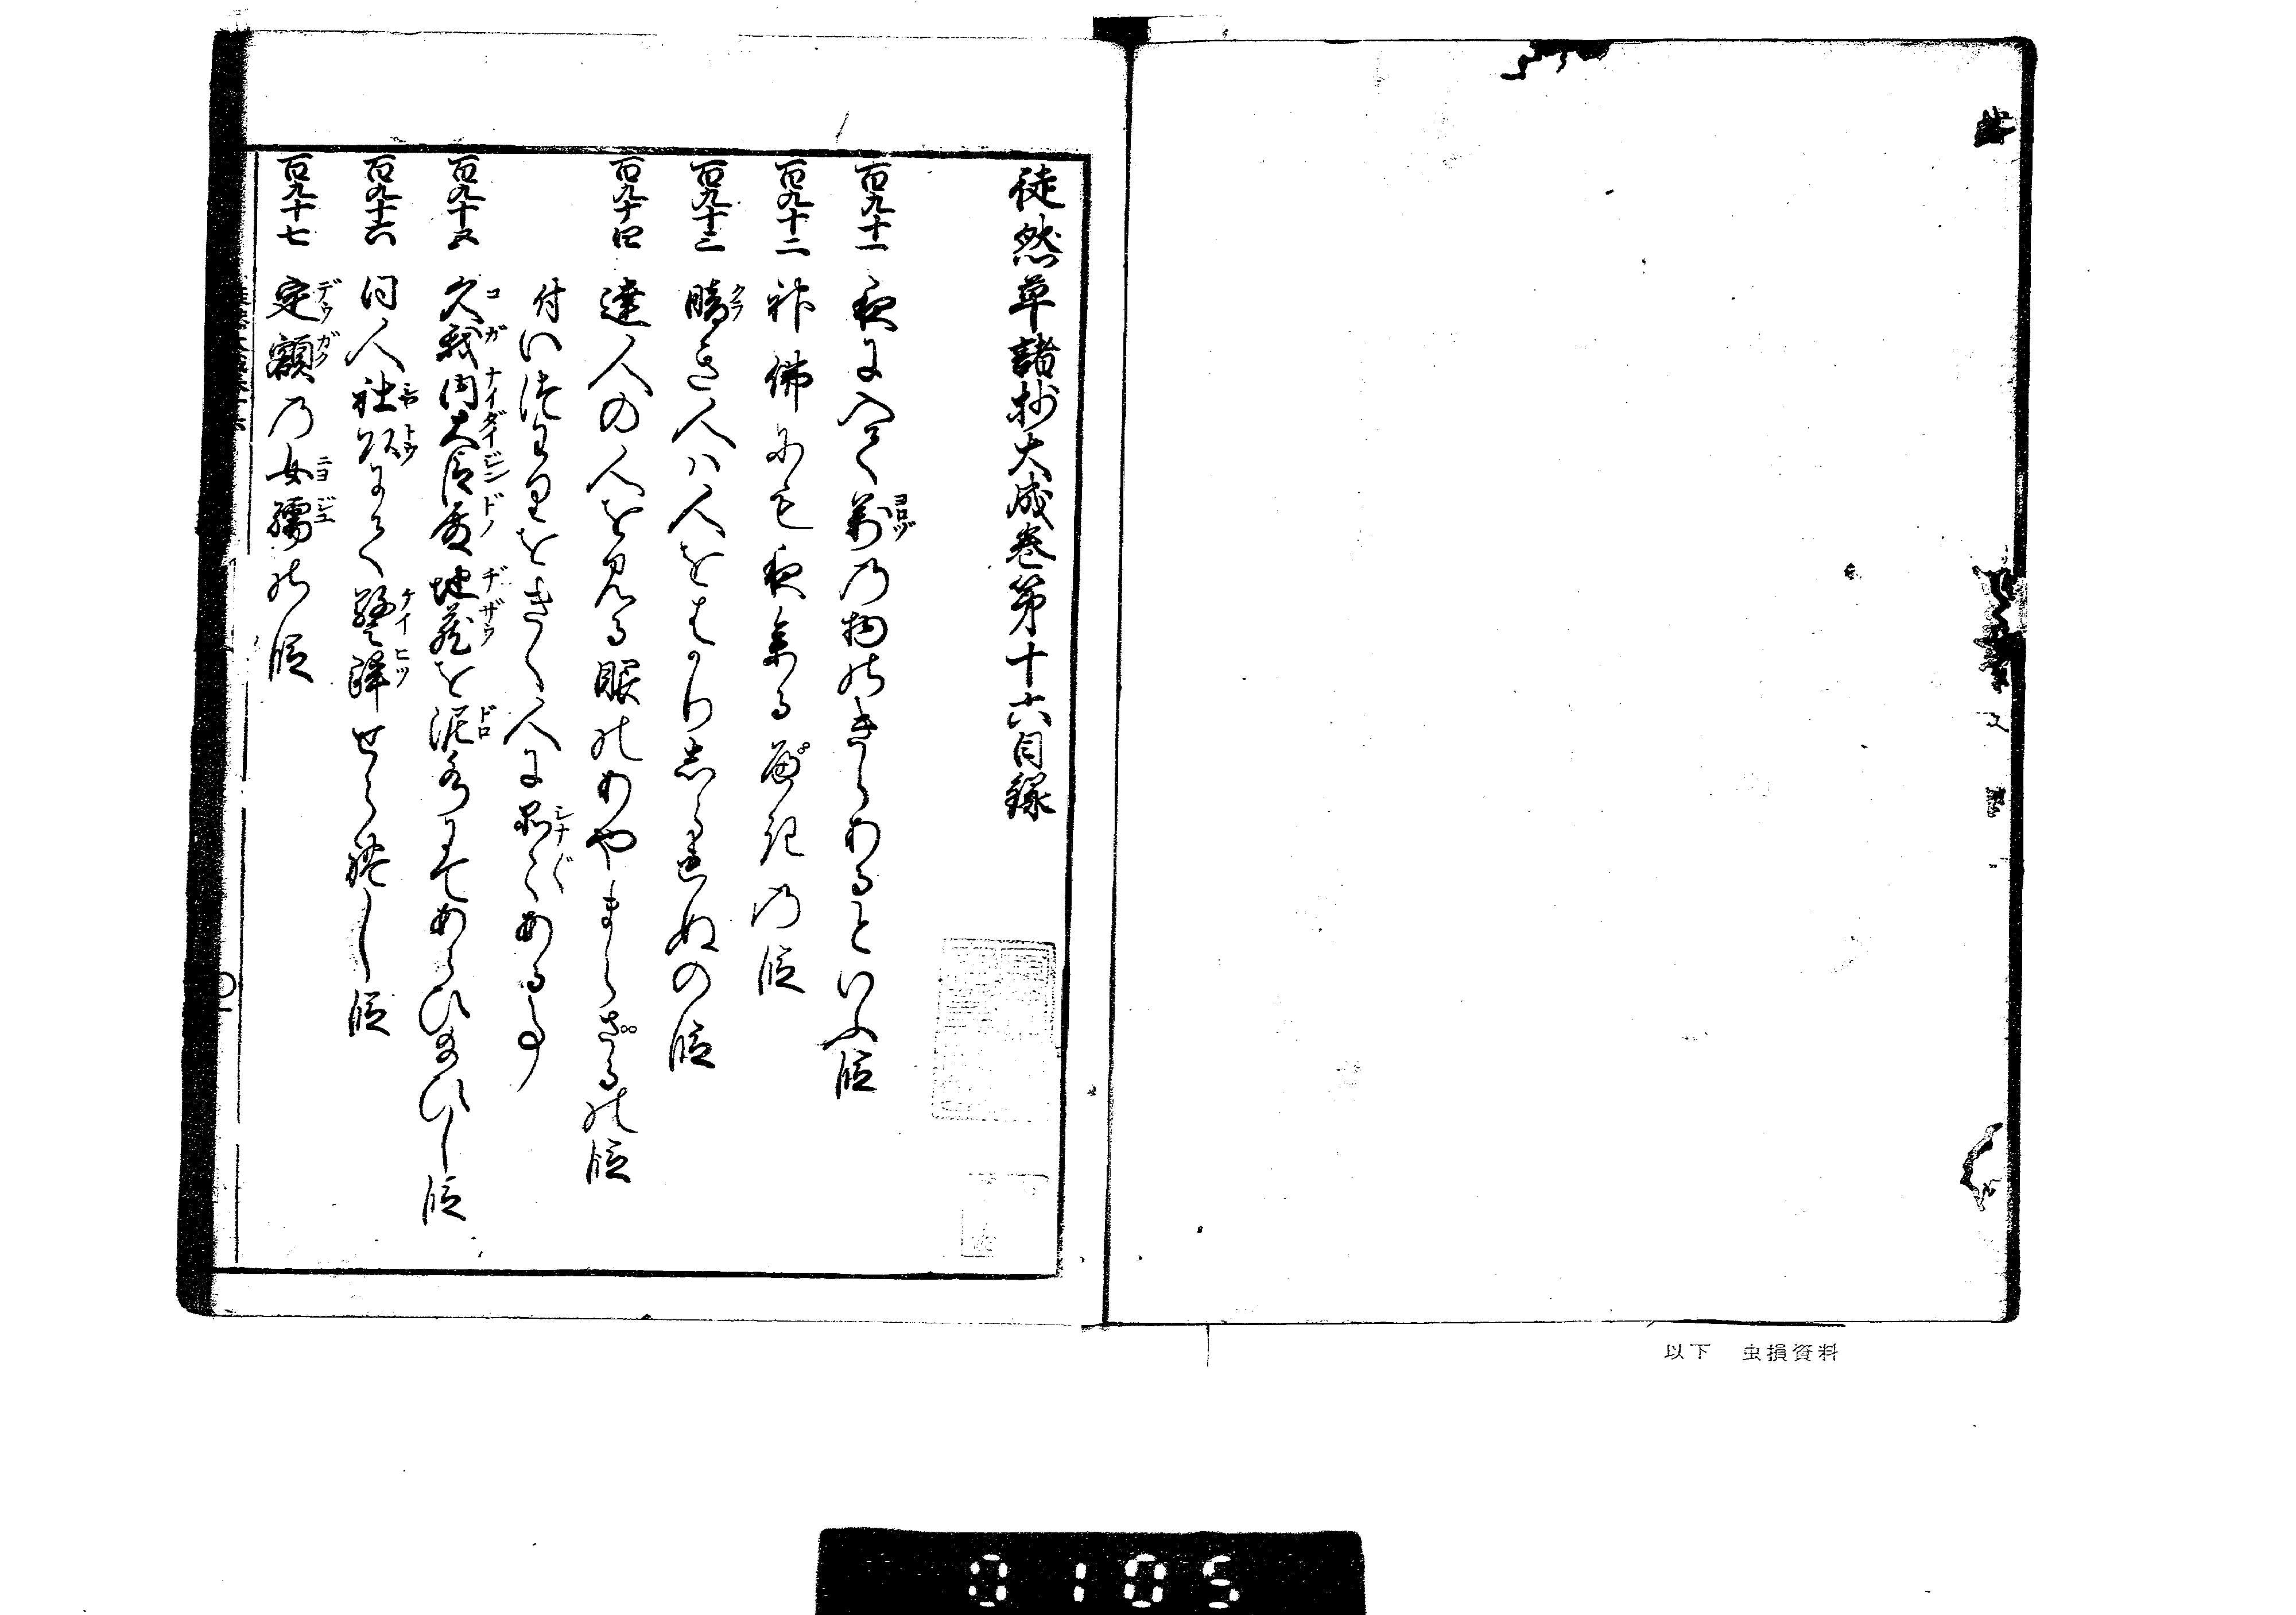 徒然草諸抄大成卷第十六目録
百九十一 夜に入て萬の物のきらあるといふ段
百九十二 神佛にも夜参るべき の段
百九十三 暗き人は人をはかりしられぬの段
百九十四 達人の人を見る眼のあやまらざるの段
付いつはりをきく人に品〴〵ある事
百九十五 久我内大臣殿地蔵を泥水にてあらひ給ひし段
百九十六 同人社頭にて警蹕せられし段
百九十七 定額の女孺の段
以下 虫損資料
0105